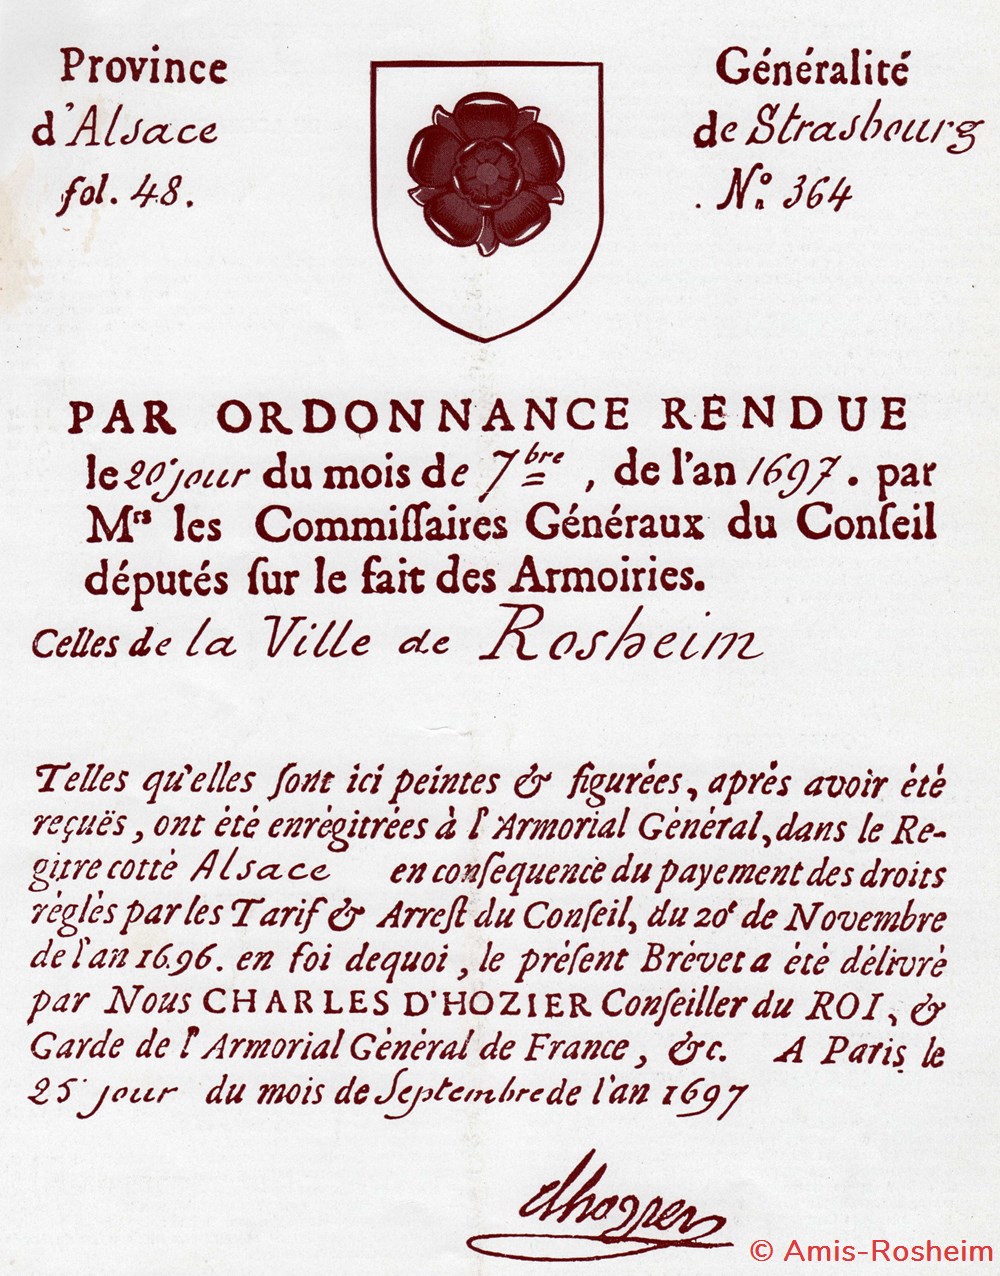 Province
d'Alsace
fol. 48.
Généralité
de Strasbourg
. N.º 364
PAR ORDONNANCE RENDUE
le 20 jour du mois de 7bre , de l'an 1697. par
Mrs les Commiſſaires Généraux du Conſeil
députés ſur le fait des Armoiries.
Celles de la Ville de Rosheim
Telles qu'elles ſont ici peintes & figurées, aprés avoir été
reçuës, ont été enrégitrées à l'Armorial Général, dans le Re-
gitre cotté Alsace en conſequence du payement des droits
réglés par les Tarif & Arreſt du Conſeil, du 20e de Novembre
de l'an 1696. en foi dequoi, le préſent Brévet a été délivré
par Nous CHARLES D'HOZIER Conſeiller du ROI, &
Garde de l'Armorial Général de France, &c. A Paris le
25 jour du mois de Septembre de l'an 1697
dhozier
© Amis-Rosheim